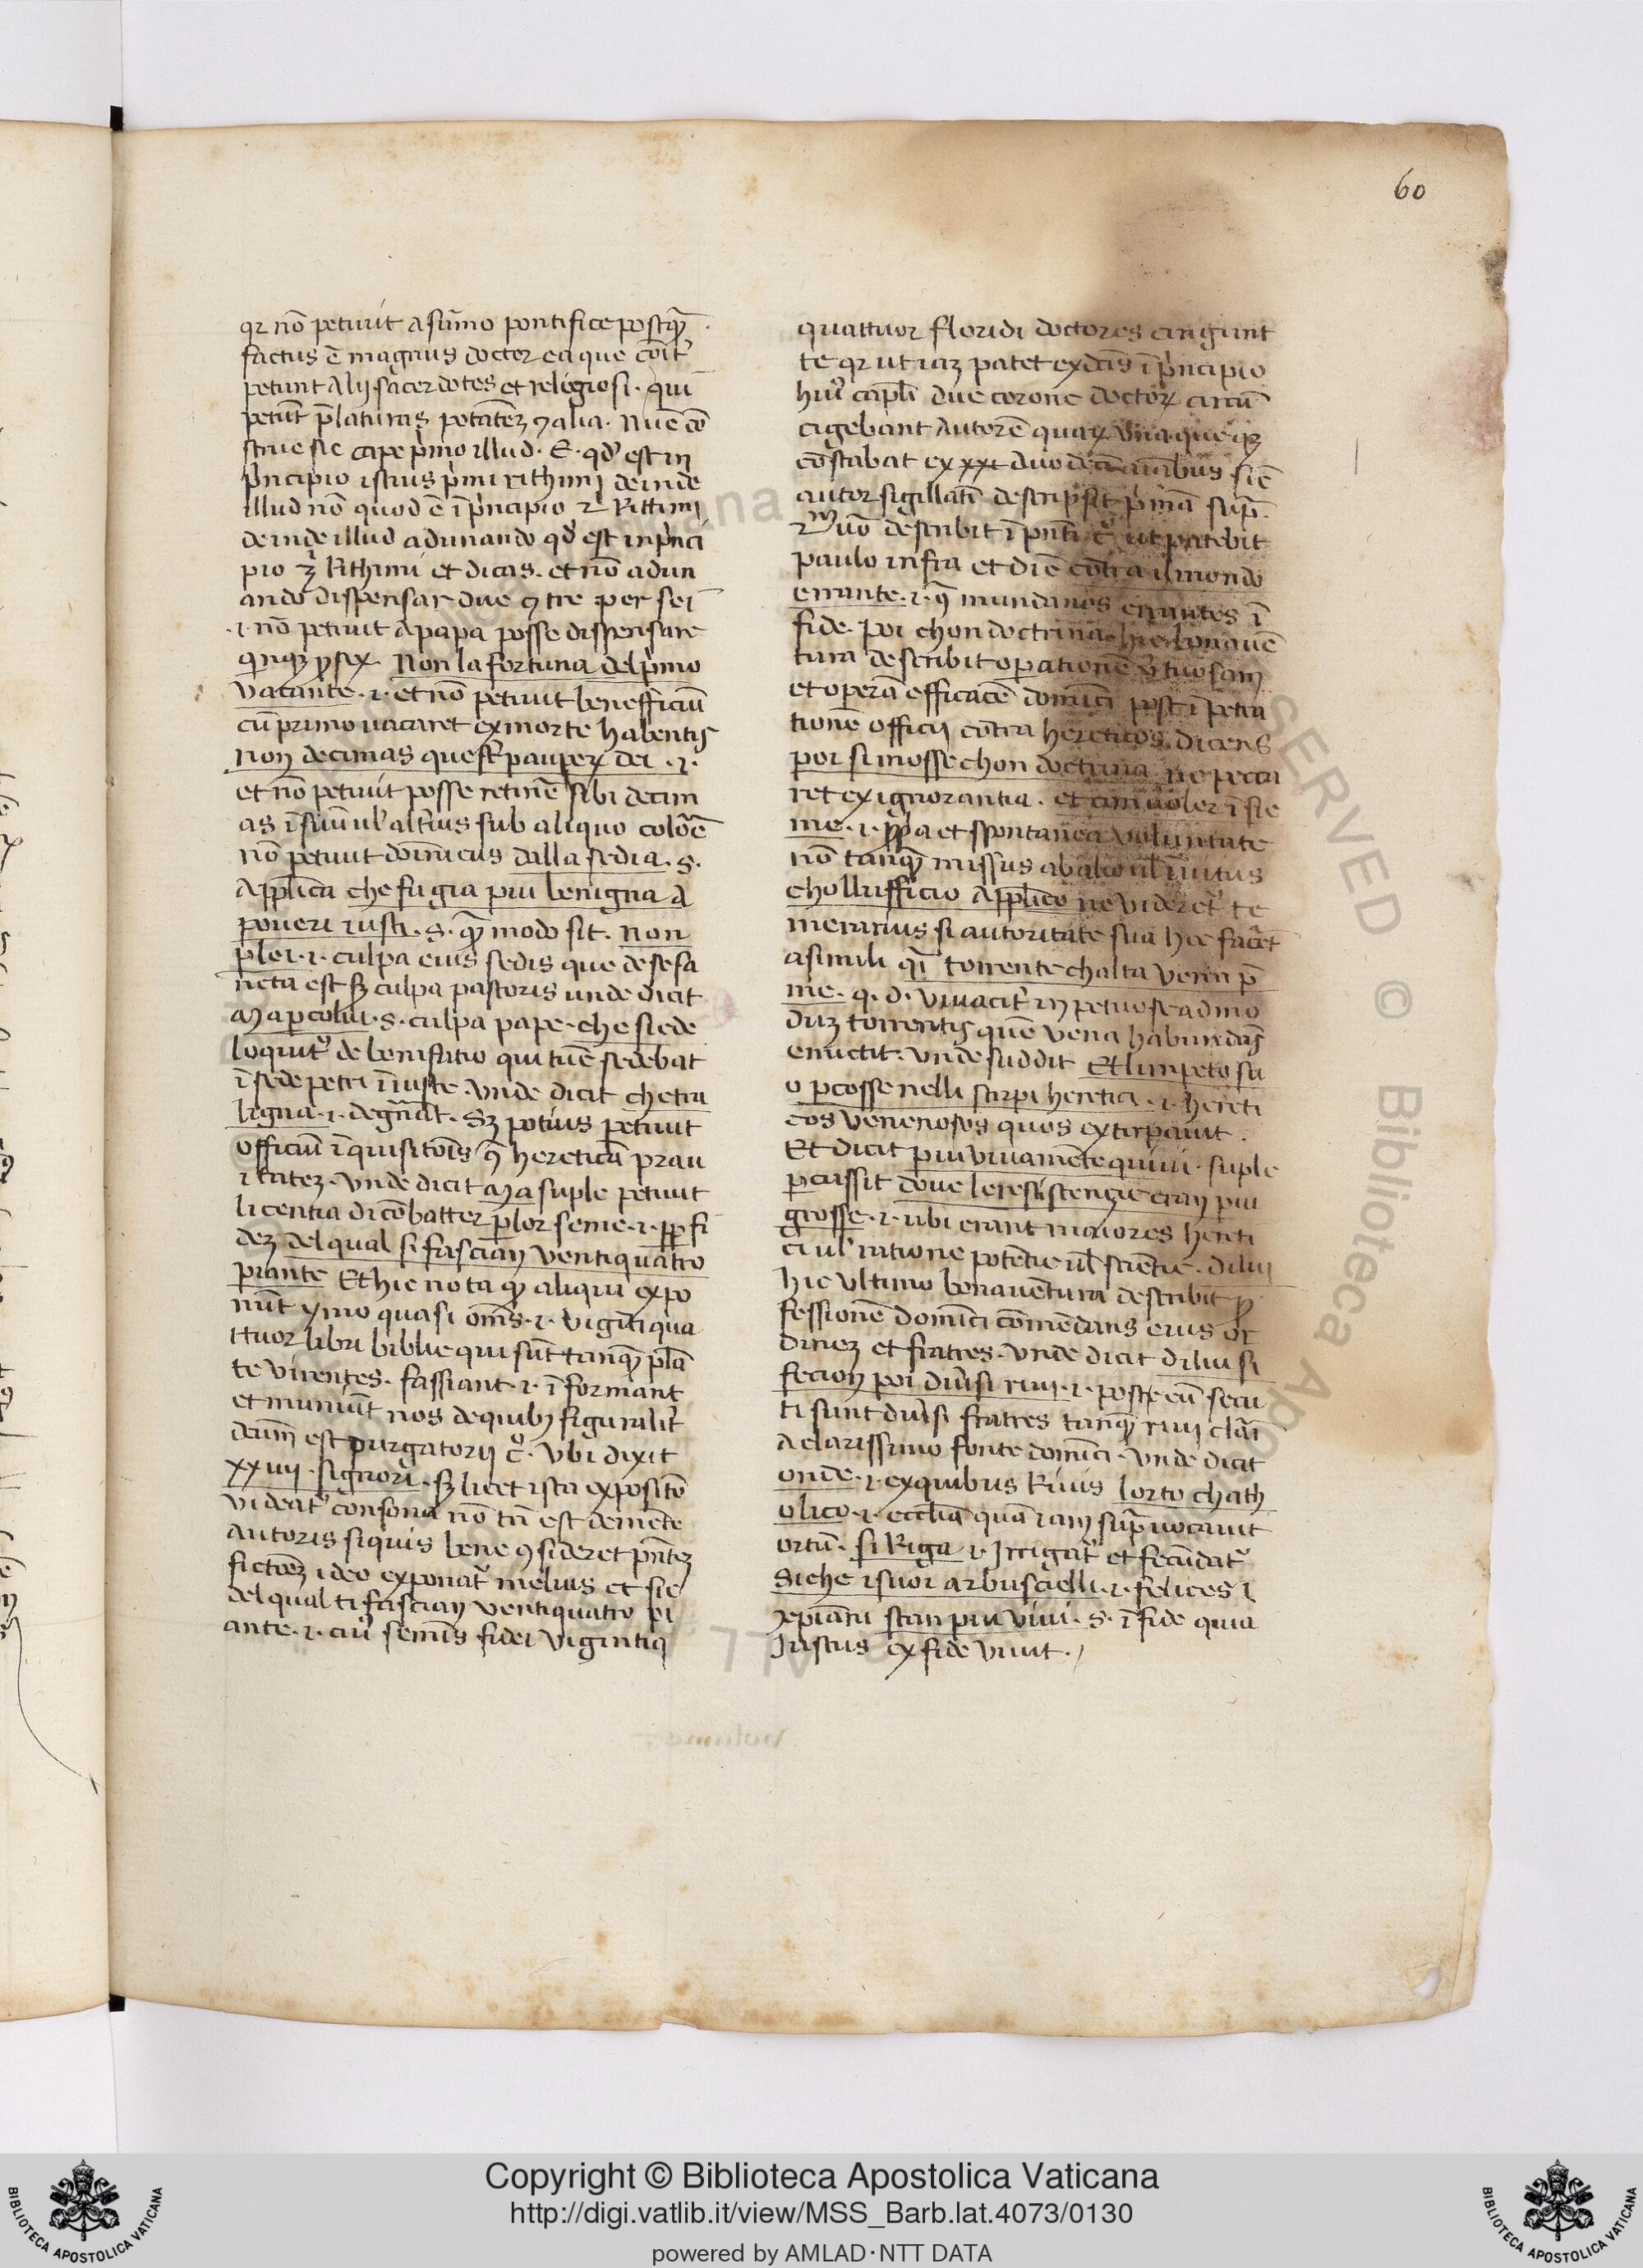 60
qr nō petiuit a sūmo pontifice postqȝ̄
factus ē magnus doctor ea que cōit̄
petunt alij sacerdotes et religiosi. qui
petūt p̄laturas potātēȝ ꝯ alia. Nūc cō
strue sic cape pͥmo illud. E. qd̕ est in
pͥncipio istius pͥmi rithimj deinde
illud nō quod ē ī pͥncipio 2ͥ Rittimj
deinde illud adimando qd̕ est in pͥnci
pio 3ͥ Rithimi et dicas. et nō adim
ando dispensar due o tre per sei
.i. nō petiuit a papa posse dispensare
Non la fortuna del pͥmo
vacante .i. et nō petiuit beneficiū
cū primo uacaret ex morte habentis
non decimas que sūt pauperꝝ dei .i.
et nō petiuit posse retinē sibi decim
as ī suū ul̕ alterius sub aliquo colorē
nō petiuit domīcus dalla sedia .s.
appl̄ica che fu gia piu benigna a
poueri iusti .s. qȝ̄ modo sit. non
p̄ lei .i. culpa eius sedis que de se sā
ncta est sȝ culpa pastoris unde dicit
Ma ꝑ colui .s. culpa pape. che siede
loquit̕ de bonifatio qui tūc sedebat
ī sede petri īiuste. Vnde dicit che tra
ligna .i. degn̄at. Sȝ potius petiuit
officiū īquisitōis ꝯ̄ hereticā prau
itateȝ. Vnde dicit Ma suple petiuit
licentia di cōbatter ꝑ lo seme .i. ꝓ fi
deȝ del qual si fascian ventiquattro
piante Et hic nota qȝ aliqui expo
nūt ymo quasi om̄s .i. viginti qua
ttuor libri biblie qui sūt tanqȝ̄ plā
te virentes. fassiant .i. īformant
et muniūt nos de quibȝ figuralit̕
dcūm̄ est purgatorij cͦ. Vbi dixit
xxiiij. signori. sȝ licet ista expositō
videat̕ consona nō tn̄ est de mente
autoris siquis bene ꝯsideret pn̄teȝ
fictōeȝ ideo exponat̕ melius et sic
del qual ti fascian ventiquatro pi
ante .i. cuiꝰ semīs fidei vigintiq
quattuor floridi doctores cingunt
te qr ut iaȝ patet ex dc̄is ī pͥncipio
huiꝰ capl̄i due corone doctorꝝ circū
cīgebant autorē quarꝝ una queqȝ
cōstabat ex duodecī sic̄
autor sigillatī descripsit pͥmā sup̄.
2ͫ uō describit ī pn̄ti cͦ ut patebit
paulo infra et dic̄ cōtra il mondo
errante .i. ꝯ̄ mundanos errantes ī
fide. poi chon doctrina hic bonauē
tura describit operationē v̕tuosam
et operā efficacē domīci post īpetra
tionē officij cōtra hereticos. dicens
poi si mosse chon doctrina ne pecca
ret ex ignorantia. et cum uoler īsie
me .i. ꝓp̕a et spontanea voluntate
nō tanqȝ̄ missus ab alio ul̕ īuitus
chollufficio appl̄ico ne videret̕ te
merarius si autoritate sua hoc facēt
a simili qͥ torrente chalta vena p̄
me. q. d. viuacit̕ inpetuose ad mo
duȝ torrentis quē vena habundās
emictit. Vnde suddit Et limpeto su
o ꝑcosse nelli sterpi heretici .i. hereti
cos venenosos quos extirpauit.
Et dicit piu viuamēte quiui. suple
ꝑcussit doue le resistençie eran piu
grosse .i. ubi erant maiores hereti
ci ul̕ ratione potētie ul̕ scientie. dilui
hic vltimo bonauētura describit ꝓ
fessionē domīci cōmēdans eius or
dineȝ et fratres. Vnde dicit dilui si
fecion poi diu̕si riui .i. post eū secu
ti sunt diu̕si fratres tanqȝ̄ riui clāi
a clarissimo fonte domīci. Vnde dicit
onde .i. ex quibus Riuis lorto chath
olico .i. eccl̄ia quā iam sup̄ uocauit
ortū. si Riga .i. Irrigat̕ et fecūdat̕
Si che i suoi arbuscielli .i. felices ī
xp̄iani stan piu viui. s. ī fide quia
Iustus ex fide viuit.
SERVED © Biblioteca Apostolica Vaticana
Copyright © Biblioteca Apostolica Vaticana
http://digi.vatlib.it/view/MSS_Barb.lat.4073/0130
powered by AMLAD·NTT DATA
BIBLIOTECA APOSTOLICA VATICANA
BIBLIOTECA APOSTOLICA VATICANA